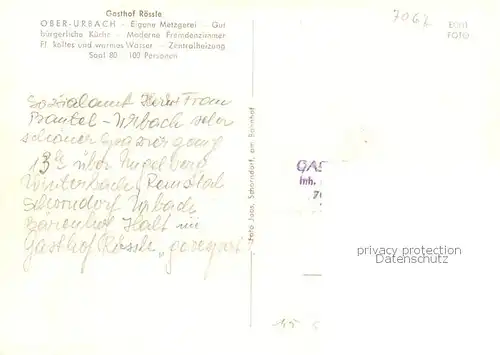 Gasthof Rössle
OBER-URBACH - Eigene Metzgerei - Gut
bürgerliche Küche - Moderne Fremdenzimmer
Fl. kaltes und warmes Wasser - Zentralheizung
Saal 80 - 100 Personen
7062
ECHT
FOTO
Sozialamt Herr Fron
Bantel - Urbach sehr
schöner Spaziergang
13 über Engelberg
Winterbach Remstal
Schorndorf Urbach
Bärenhof Halt im
Gasthof Rössle
Foto Jaas, Schorndorf, am Bahnhof
GAS
Inh.
privacy protection
Datenschutz